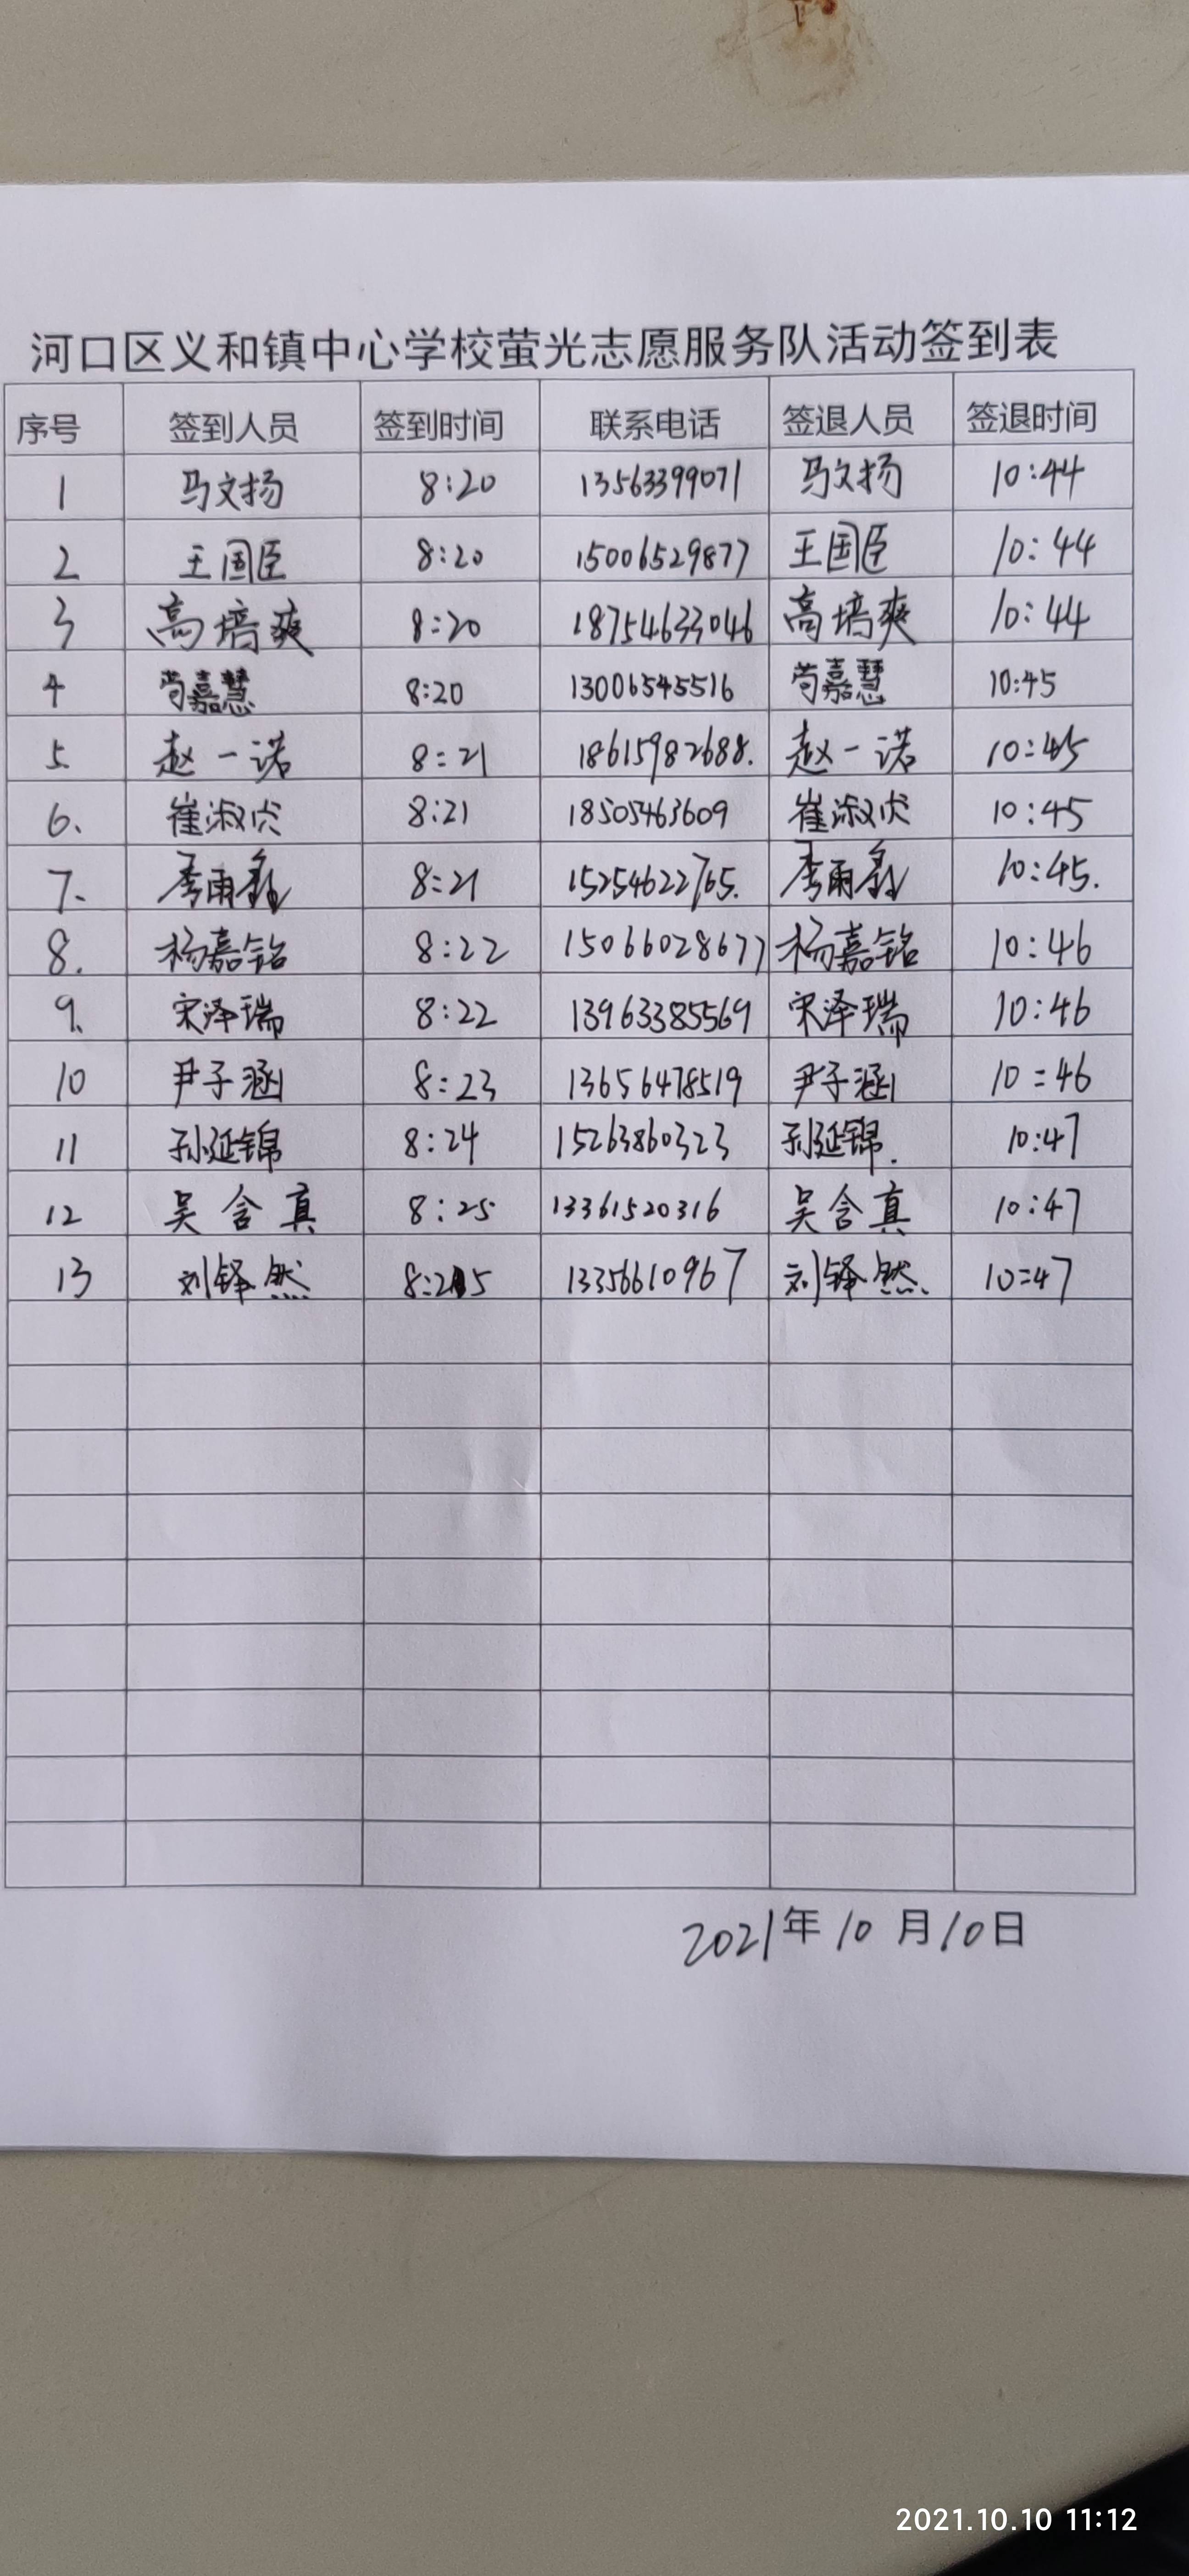 河口区义和镇中心学校萤光志愿服务队活动签到表
序号 签到人员 签到时间 联系电话 签退人员 签退时间
1 马文扬 8:20 13563399071 马文扬 10:44
2 王国臣 8:20 15006529877 王国臣 10:44
3 高培爽 8:20 18754633046 高培爽 10:44
4 苟嘉慧 8:20 13006545516 苟嘉慧 10:45
5. 赵一诺 8:21 18615982688. 赵一诺 10:45
6. 崔淑贞 8:21 18505463609 崔淑贞 10:45
7. 李雨鑫 8:21 15254622765. 李雨鑫 10:45.
8. 杨嘉铭 8:22 15066028677 杨嘉铭 10:46
9. 宋泽瑞 8:22 13963385569 宋泽瑞 10:46
10 尹子涵 8:23 13656478519 尹子涵 10:46
11 孙延锦 8:24 15263860323 孙延锦. 10:47
12 吴含真 8:25 13361520316 吴含真 10:47
13 刘铎然 8:25 13356610967 刘铎然 10:47
2021年10月10日
2021.10.10 11:12